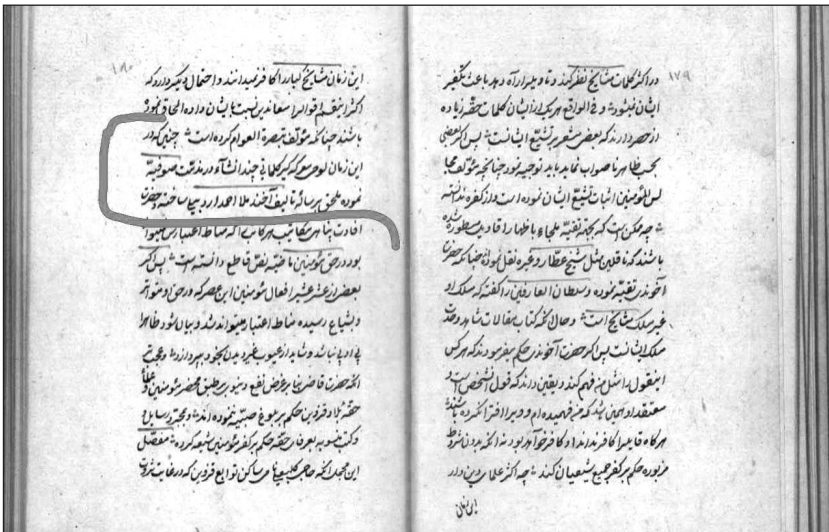 ۱۷۹
در اکثر کلمات مشایخ نظر کند و تاویل را راه دهد باعث تکفیر
ایشان نمیشود و فی الواقع هر یک از ایشان کلمات حقه زیاده
از حصر دارند که بعض مشعر بر تشیع ایشانست پس اگر بعضی
بحسب ظاهر ناصواب نماید باید توجیه نمود چنانچه مؤلف مجا
لس المؤمنین اثبات تشیع ایشان نموده است و از کفره ندانسته
چه ممکن است که بجهة تقیه ملجاء باظهار اقاویل مسطوره شده
باشند که ناقلین مثل شیخ عطار و غیره نقل نموده چنانکه حضرت
آخوندی تقیه نموده و سلطان العارفین را گفته که مسلک او
غیر مسلک مشایخ است و حال آنکه کتاب مقالات شاهر وحدت
مسلک ایشانست پس اگر حضرت آخوندی حکم میفرمودند که هر کس
اینقول را مثل من فهم کند و یقین داند که قول آنشخص است و
معتقد او همین باشد که من فهمیده ام و ویرا افترا نکرده باشند
هرگاه قایل را کافر نداند او کافر خواهد بود نه آنکه بدون شروط
مزبوره حکم بر کفر جمیع شیعیان کند چه اکثر علمای دین و در
این زمان
۱۸۰
این زمان مشایخ کبار را کافر نمیدانند و احتمال دیگر دارد که
اکثر اینقسم اقوال را معاندین نسبت بایشان داده الحاق نموده
باشند چنانکه مؤلف تبصرة العوام کرده است چنین که در
این زمان لوحی معرکه گیر کلماتی چند انشاء در مذمت صوفیه
نموده ملحق برساله تالیف آخند ملا احمد اردبیلی ساخته و حضرت
افادت پناهی مکاتیب هر کاتب را که مناط اعتبار نمیتواند
بود در حق مؤمنین ماضیه نص قاطع دانسته است پس اگر
بعضی از عشر عشیر افعال مؤمنین این عصر که در حق او متواتر
و بشیاع رسیده مناط اعتبار میتواند شد و بیان شود ظاهرا
بی ادبی نباشد و شاید از عیوب غیر دیدن بخود بپردازد و عجب تر
آنکه حضرت قاضی بنا بر غرض نفع دنیوی بر طبق محضر مؤمنین و علماء
حقه بلاد قزوین حکم بر بلوغ صبیه نموده اند و بمجرد رسایل و
کتب منسوبه بعرفای حقه حکم بر کفر مؤمنین شیعه کرده مفصل
این مجمل آنکه حاجی کلبعلی نامی ساکن توابع قزوین که در غایت ثروت